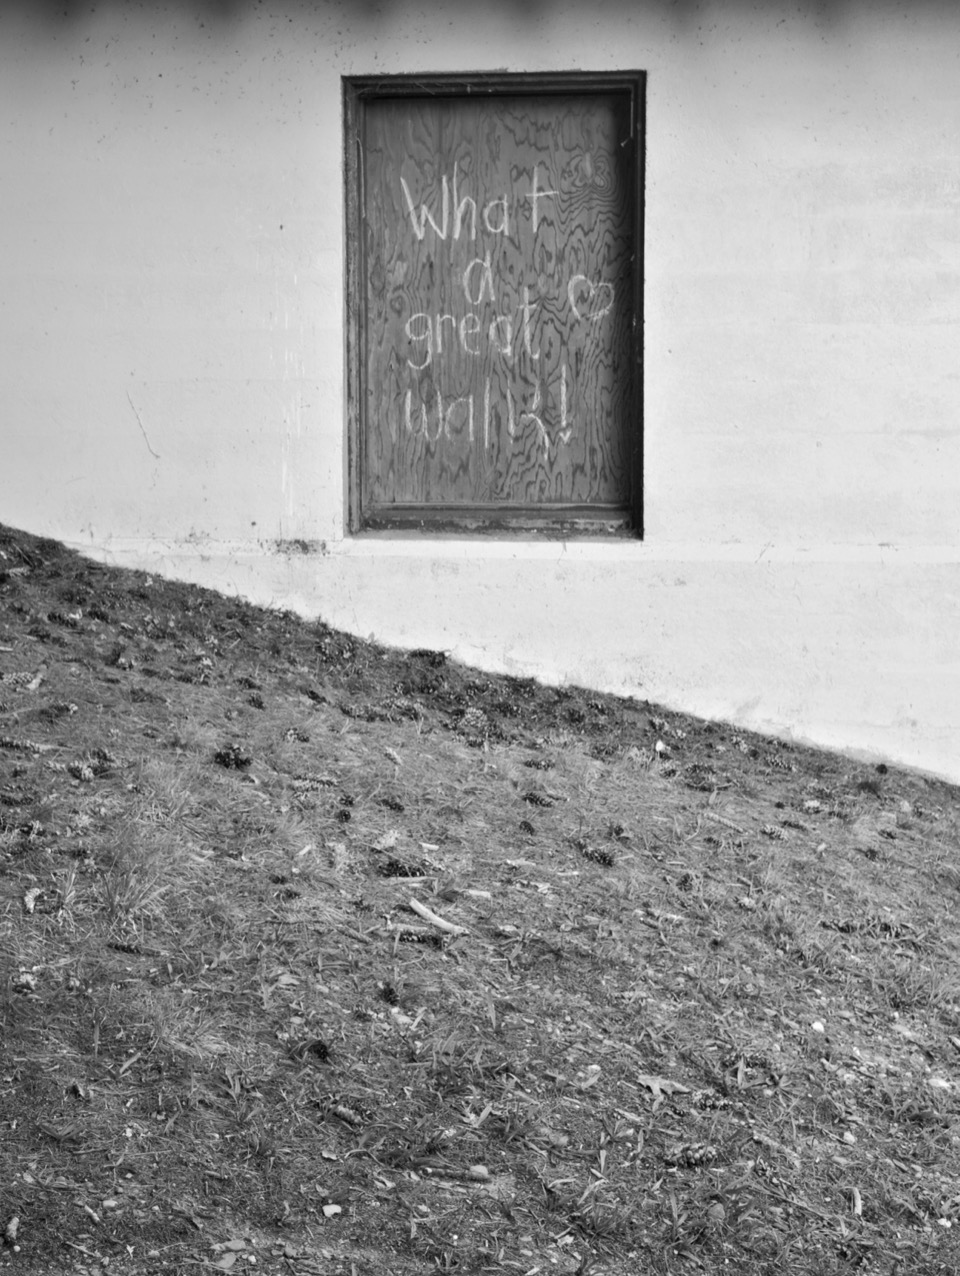 What
a
great ♡
walk!